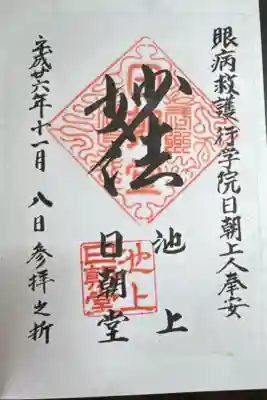 眼病救護 行学院日朝上人奉安
妙法
池上
日朝堂
平成廿六年十一月八日参拝之折
池上
日朝堂